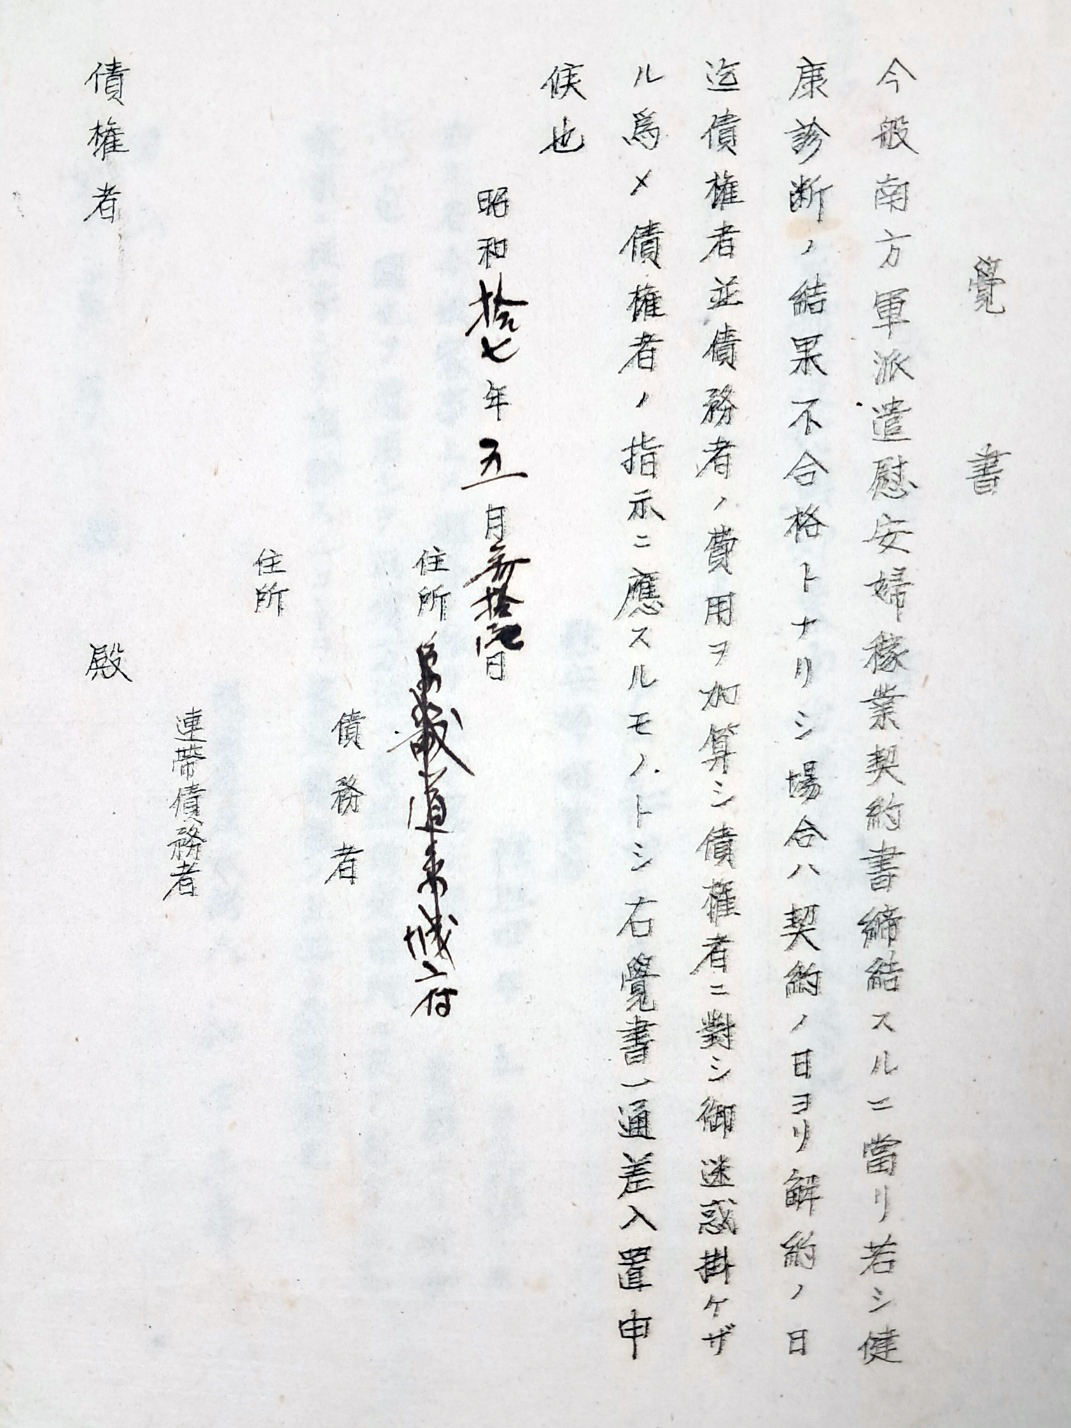 覺書
今般南方軍派遣慰安婦稼業契約書締結スルニ當リ若シ健
康診断ノ結果不合格トナリシ場合ハ契約ノ日ヨリ解約ノ日
迄債権者並債務者ノ費用ヲ加算シ債権者ニ對シ御迷惑掛ケザ
ル爲メ債権者ノ指示ニ應スルモノトシ右覺書一通差入置申
候也
昭和拾七年五月参拾日
住所 道 城 付
債務者
住所
連帯債務者
債権者 殿